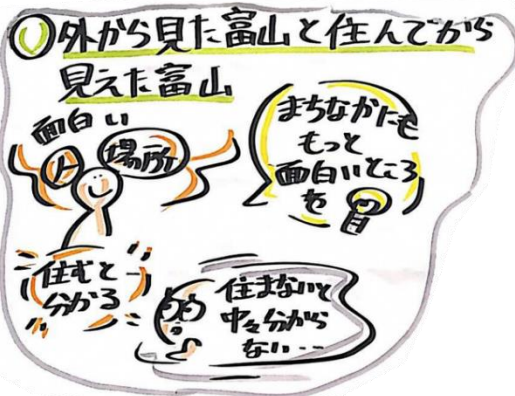 ① 外から見た富山と住んでから
見えた富山
面白い
人
場所
まちなかにも
もっと
面白いところ
を
住むと
分かる
住まないと
中々分から
ない…